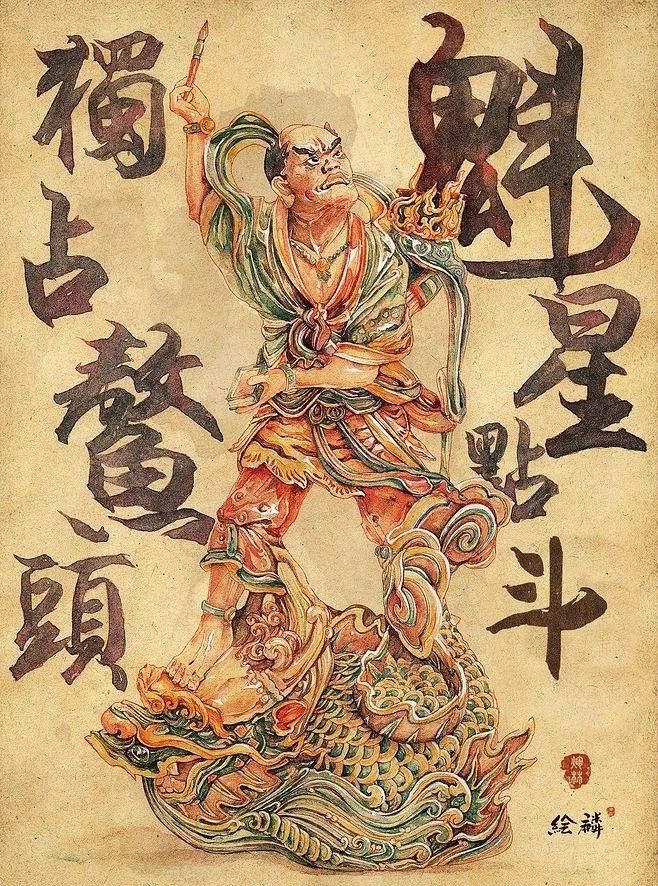 魁星點斗
獨占鰲頭
絵麟